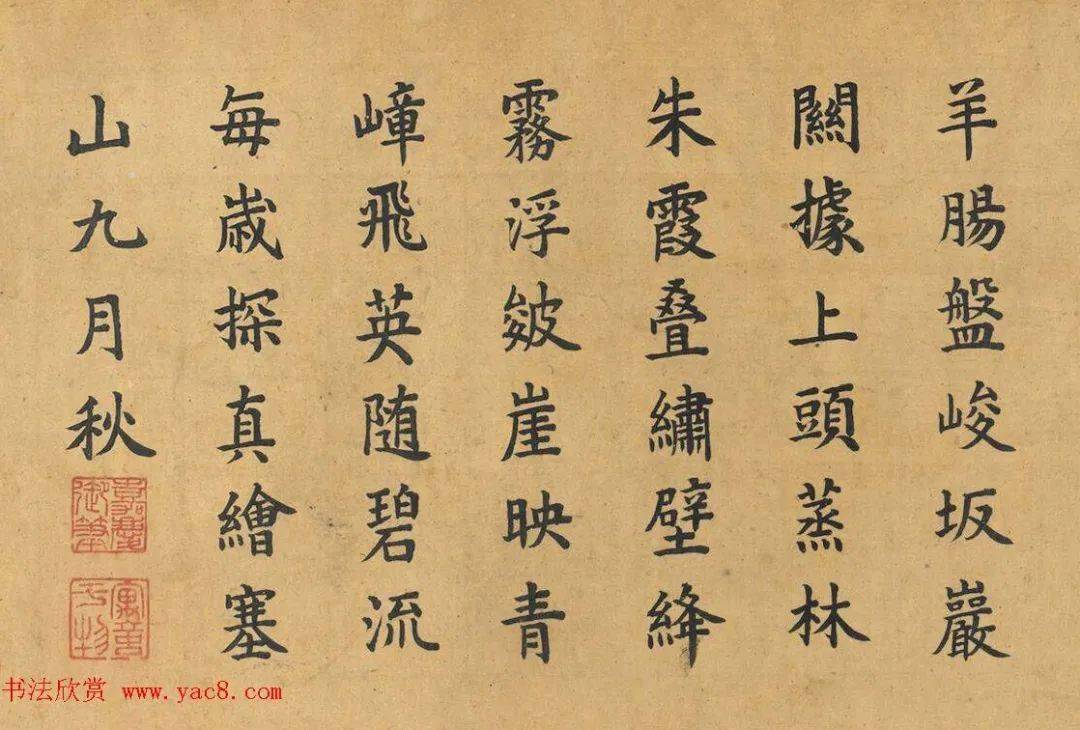 羊腸盤峻坂巖
關據上頭蒸林
朱霞叠繡壁絳
霧浮皴崖映青
嶂飛英随碧流
每歲探真繪塞
山九月秋
嘉慶御筆
書法欣赏 www.yac8.com